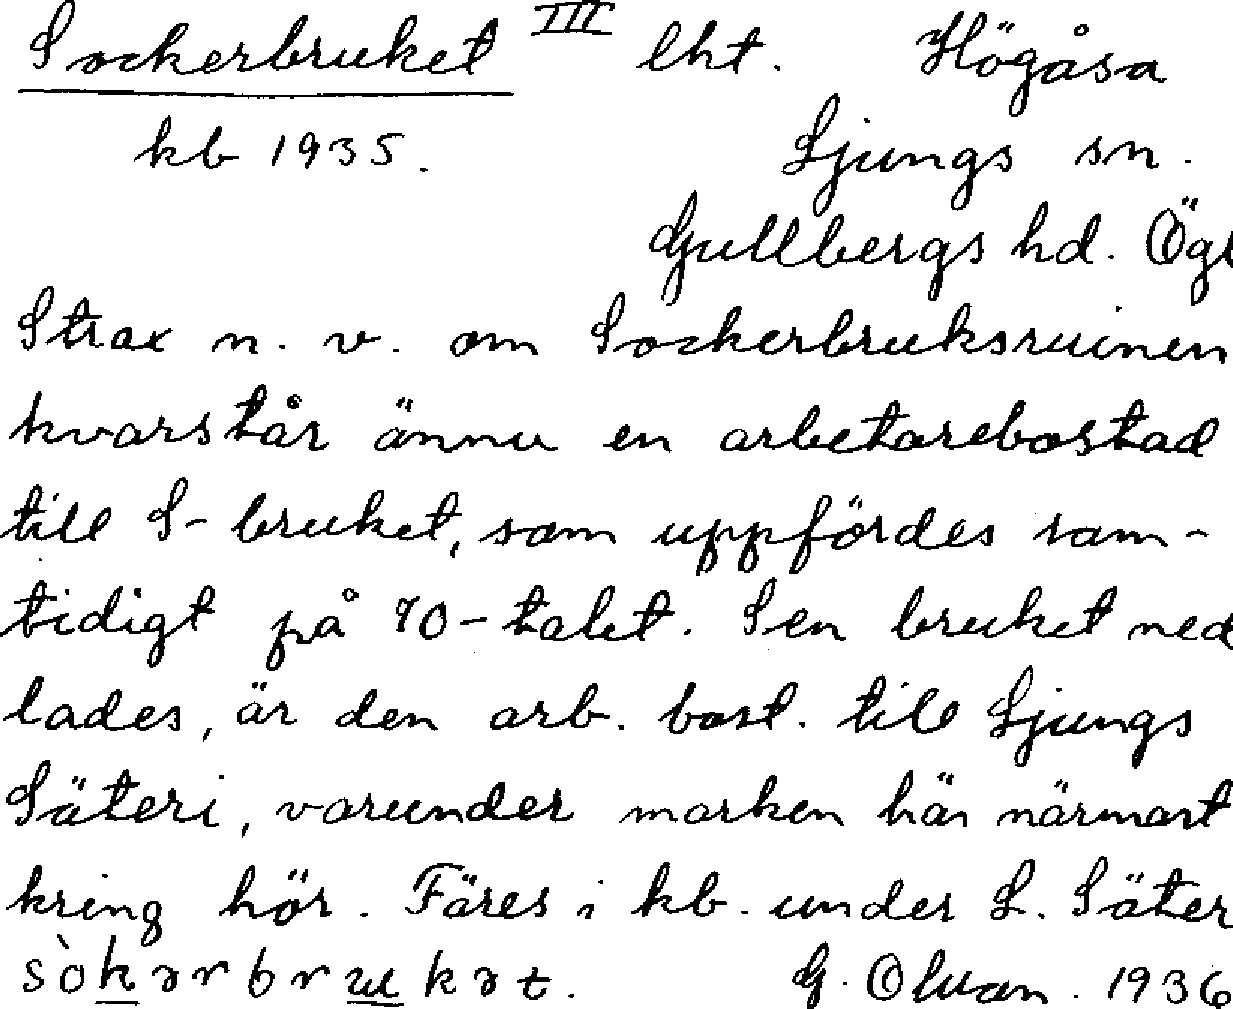 Sockerbruket III lht. Högåsa
kb 1935. Ljungs sn.
Gullbergs hd. Ögl
Strax n. v. om Sockerbruksruinen
kvarstår ännu en arbetarebostad
till S-bruket, som uppfördes sam-
tidigt på 90-talet. Sen bruket ned
lades, är den arb. bost. till Ljungs
Säteri, varunder marken här närmast
kring hör. Föres i kb. under L. Säter
sòkərbrukət. G. Olson. 1936